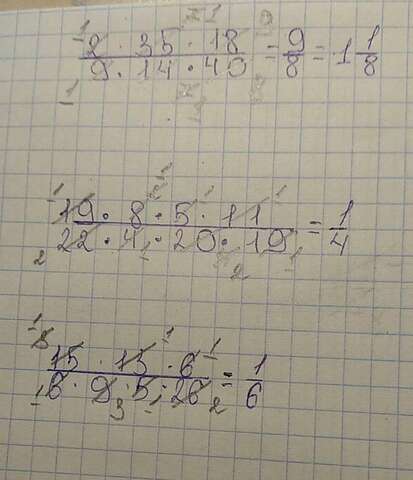 8 · 35 · 18 / 9 · 14 · 40 = 9/8 = 1 1/8
19 · 8 · 5 · 11 / 22 · 4 · 20 · 19 = 1/4
15 · 13 · 6 / 6 · 9 · 5 · 26 = 1/6